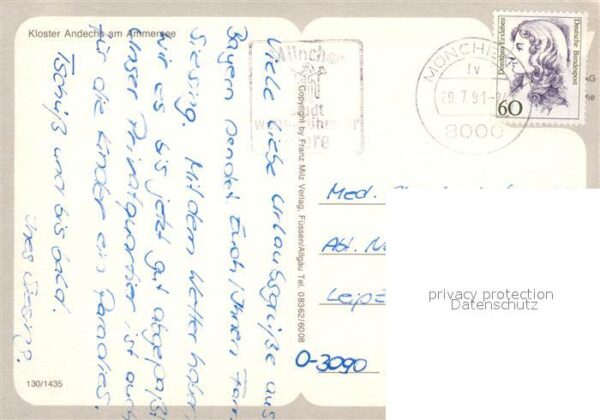 Kloster Andechs am Ammersee
Viele liebe Urlaubsgrüße aus
Bayern sendet Euch/Ihnen Fam.
Siesing. Mit dem Wetter haben
wir es bis jetzt gut abgepaßt.
Unser Privatquartier ist auch
für die Kinder ein Paradies.
Tschüß und bis bald.
Copyright by Franz Milz Verlag, Füssen/Allgäu Tel. 08362/6008
130/1435
München
Stadt
MÜNCHEN
rv
29.7.91
8000
Deutsche Bundespost
60
Med.
Abt.
Leipz
O-3090
privacy protection
Datenschutz